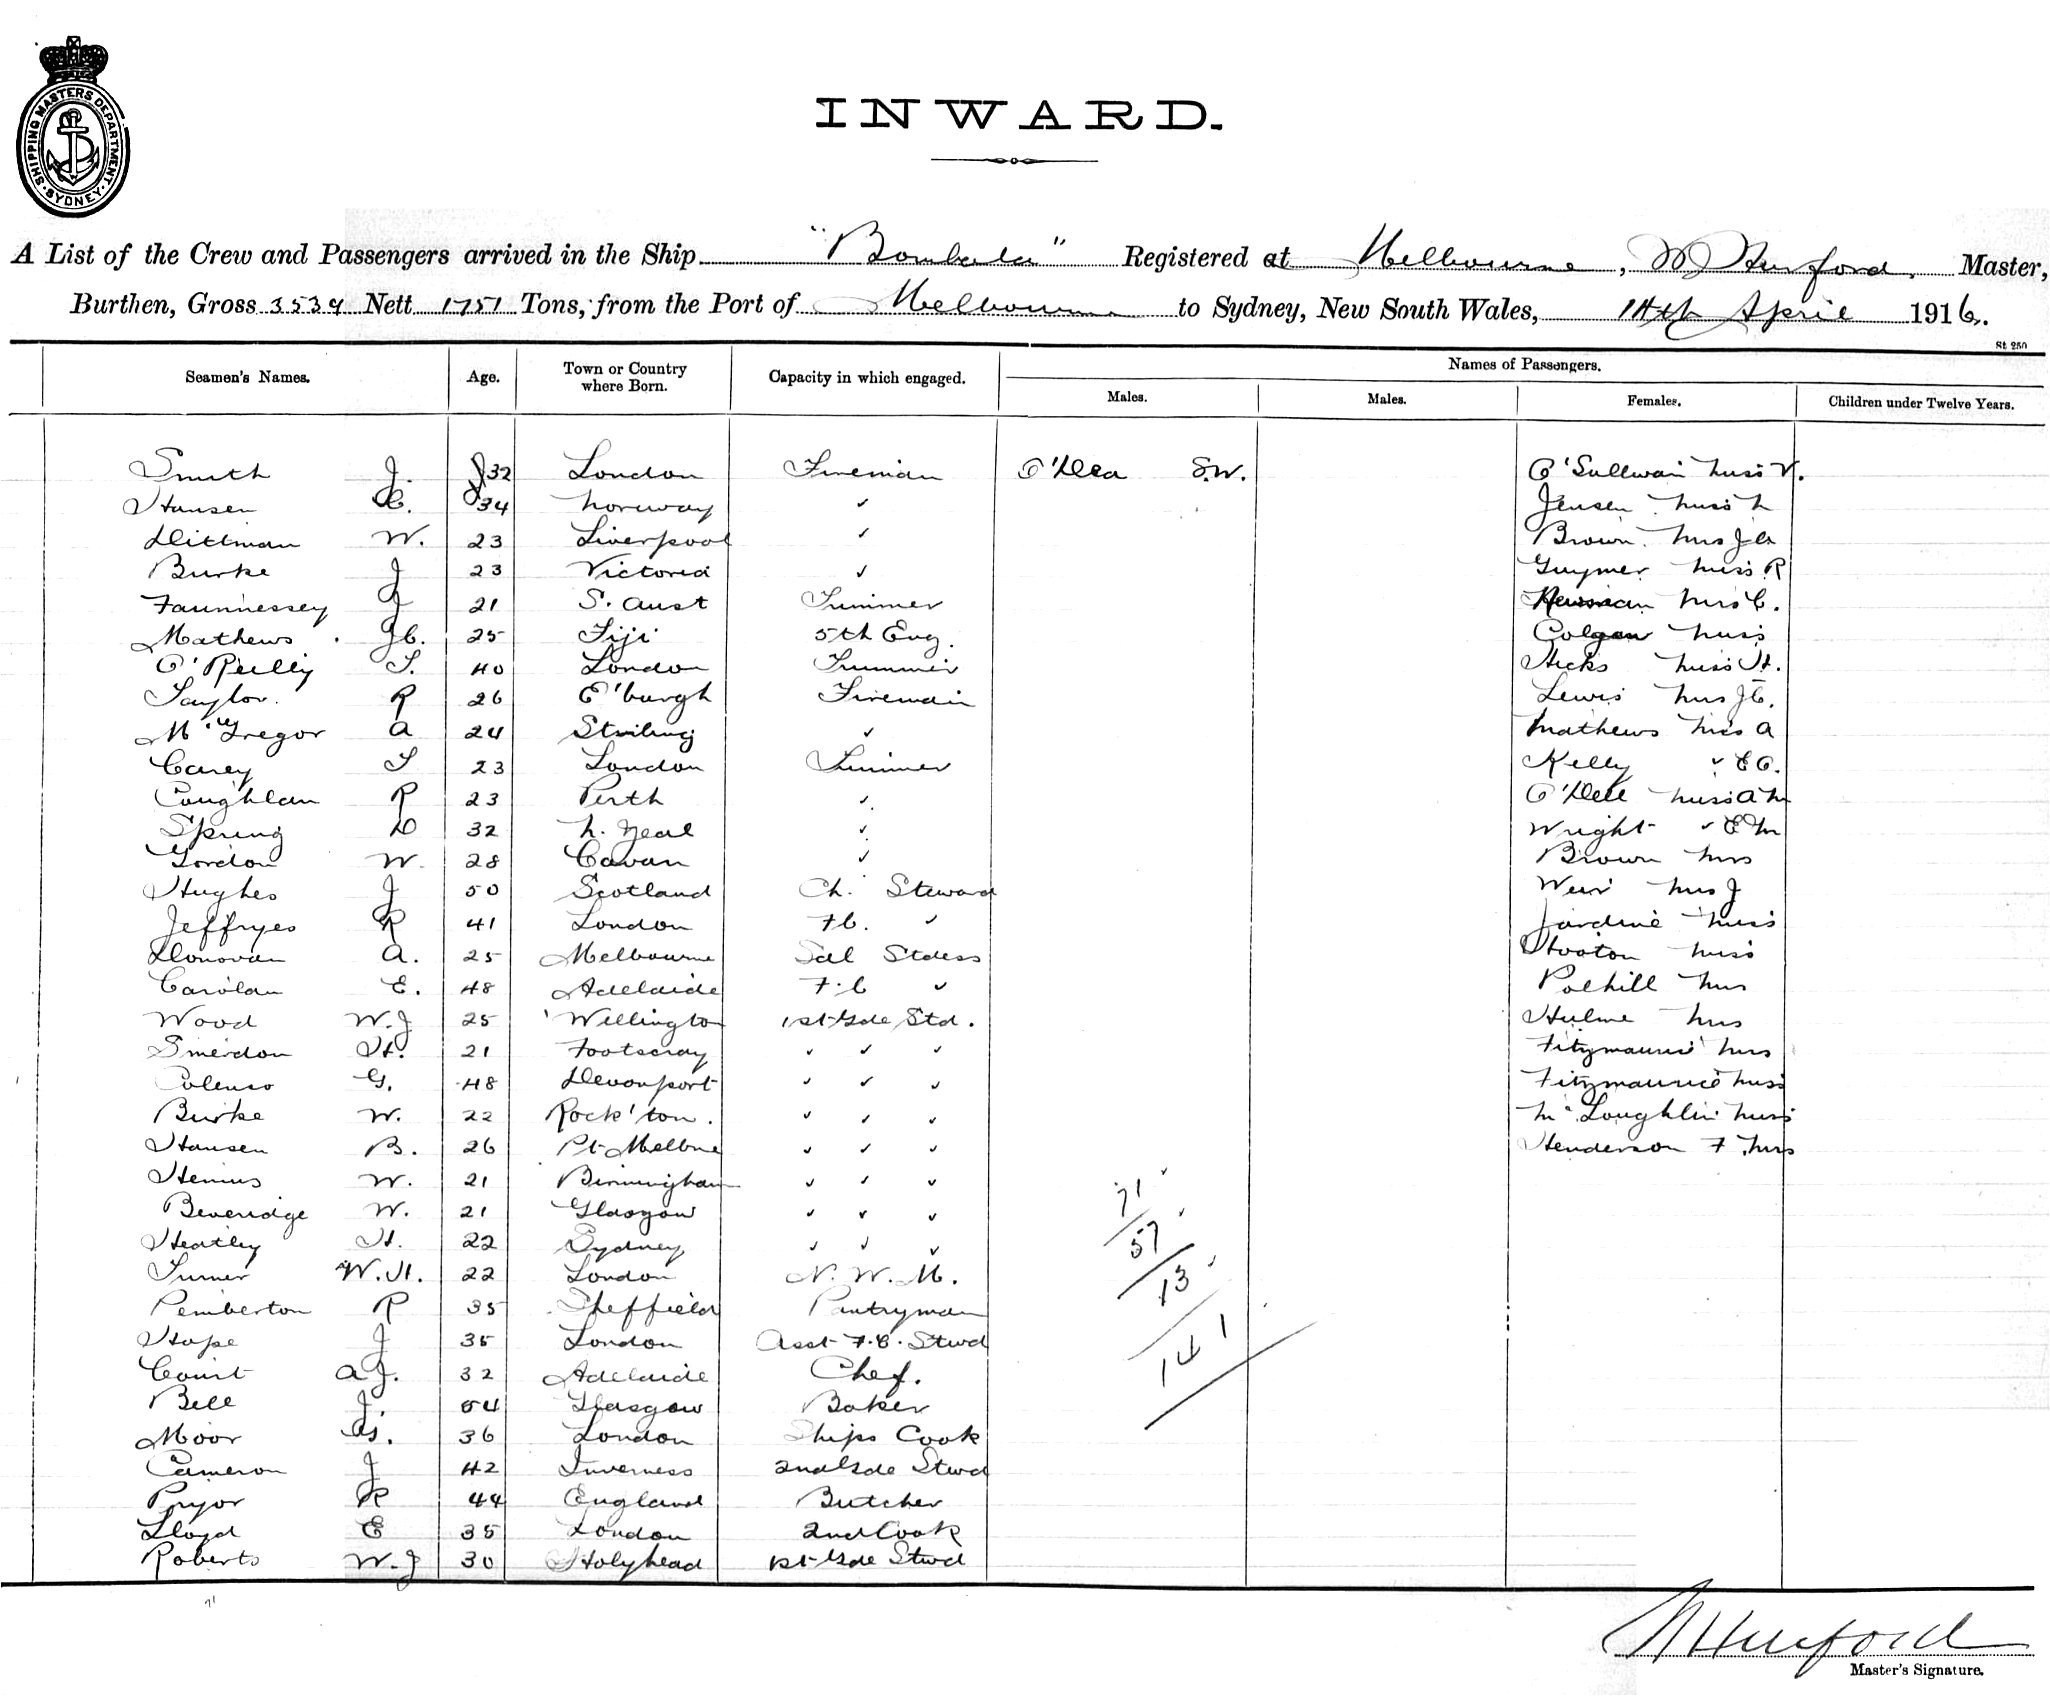 SHIPPING MASTERS DEPARTMENT. SYDNEY
INWARD.
A List of the Crew and Passengers arrived in the Ship "Bombala" Registered at Melbourne, W Hurford, Master,
Burthen, Gross 3539 Nett 1751 Tons, from the Port of Melbourne to Sydney, New South Wales, 11th April 1916.
St 250
Seamen's Names. Age. Town or Country where Born. Capacity in which engaged. Names of Passengers.
Males. Males. Females. Children under Twelve Years.
Smith J. 32 London Fireman O'Dea S.W. O'Sullivan Miss V.
Hansen C. 34 Norway ✓ Jensen Miss M
Dittman W. 23 Liverpool ✓ Brown Mrs J
Burke J 23 Victoria ✓ Guymer Miss R
Faunnessey J 21 S. Aust Trimmer Newman Mrs C.
Mathews J C. 25 Fiji 5th Eng. Colgan Miss
O'Reilly T. 40 London Trimmer Hicks Miss H.
Taylor R 26 E'burgh Fireman Lewis Mrs J C.
McGregor A 24 Stirling ✓ Mathews Miss A
Carey T 23 London Trimmer Kelly ✓ E C.
Coughlan R 23 Perth ✓ O'Dell Miss A M
Spring D 32 N. Zeal ✓ Wright ✓ E M
Gordon W. 28 Cavan ✓ Brown Mrs
Hughes J 50 Scotland Ch. Steward Weir Mrs J
Jeffryes R 41 London F C. ✓ Jardine Miss
Donovan A. 25 Melbourne Sal Stdess Hooton Miss
Carolan E. 48 Adelaide F. C ✓ Polhill Mrs
Wood W.J 25 Wellington 1st Gde Std. Hulme Mrs
Smerdon H. 21 Footscray ✓ ✓ ✓ Fitzmaurice Mrs
Colenso G. 48 Devonport ✓ ✓ ✓ Fitzmaurice Miss
Burke W. 22 Rock'ton. ✓ ✓ ✓ McLoughlin Miss
Hansen B. 26 Pt Melbne ✓ ✓ ✓ Henderson F Mrs
W. 21 Birmingham ✓ ✓ ✓ 71
Beveridge W. 21 Glasgow ✓ ✓ ✓ 57
Heatley H. 22 Sydney ✓ ✓ ✓
Turner W.H. 22 London N. W. M. 13
Pemberton R 35 Sheffield Pantryman
Hope J 35 London Asst F.C. Stwd 141
Court A J. 32 Adelaide Chef.
Bell J. 54 Glasgow Baker
Moor G. 36 London Ships Cook
Cameron J 42 Inverness 2nd Gde Stwd
Pryor R 44 England Butcher
Lloyd E 35 London 2nd Cook
Roberts W.J 30 Holyhead 1st Gde Stwd
W Hurford
Master's Signature.